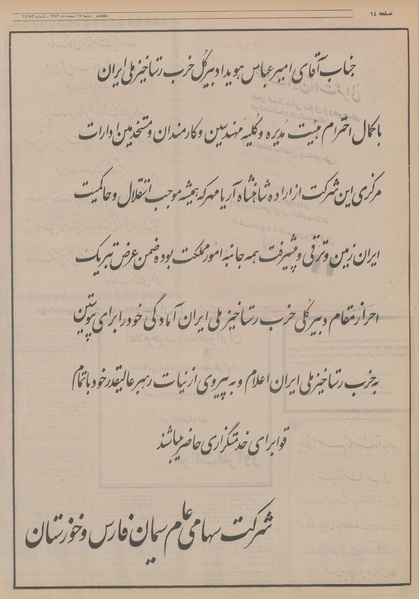 صفحه ۱٤
جناب آقای امیرعباس هویدا دبیرکل حزب رستاخیز ملی ایران
باکمال احترام هیئت مدیره وکلیه مهندسین وکارمندان و مستخدمین ادارات
مرکزی این شرکت از اراده شاهنشاه آریامهر که همیشه موجب استقلال و حاکمیت
ایران زمین و ترقی و پیشرفت همه جانبه امور مملکت بوده ضمن عرض تبریک
احراز مقام دبیر کلی حزب رستاخیز ملی ایران آمادگی خود را برای پیوستن
به حزب رستاخیز ملی ایران اعلام و به پیروی از نیات رهبر عالیقدر خود باتمام
قوا برای خدمتگزاری حاضر میباشند
شرکت سهامی عام سیمان فارس و خوزستان